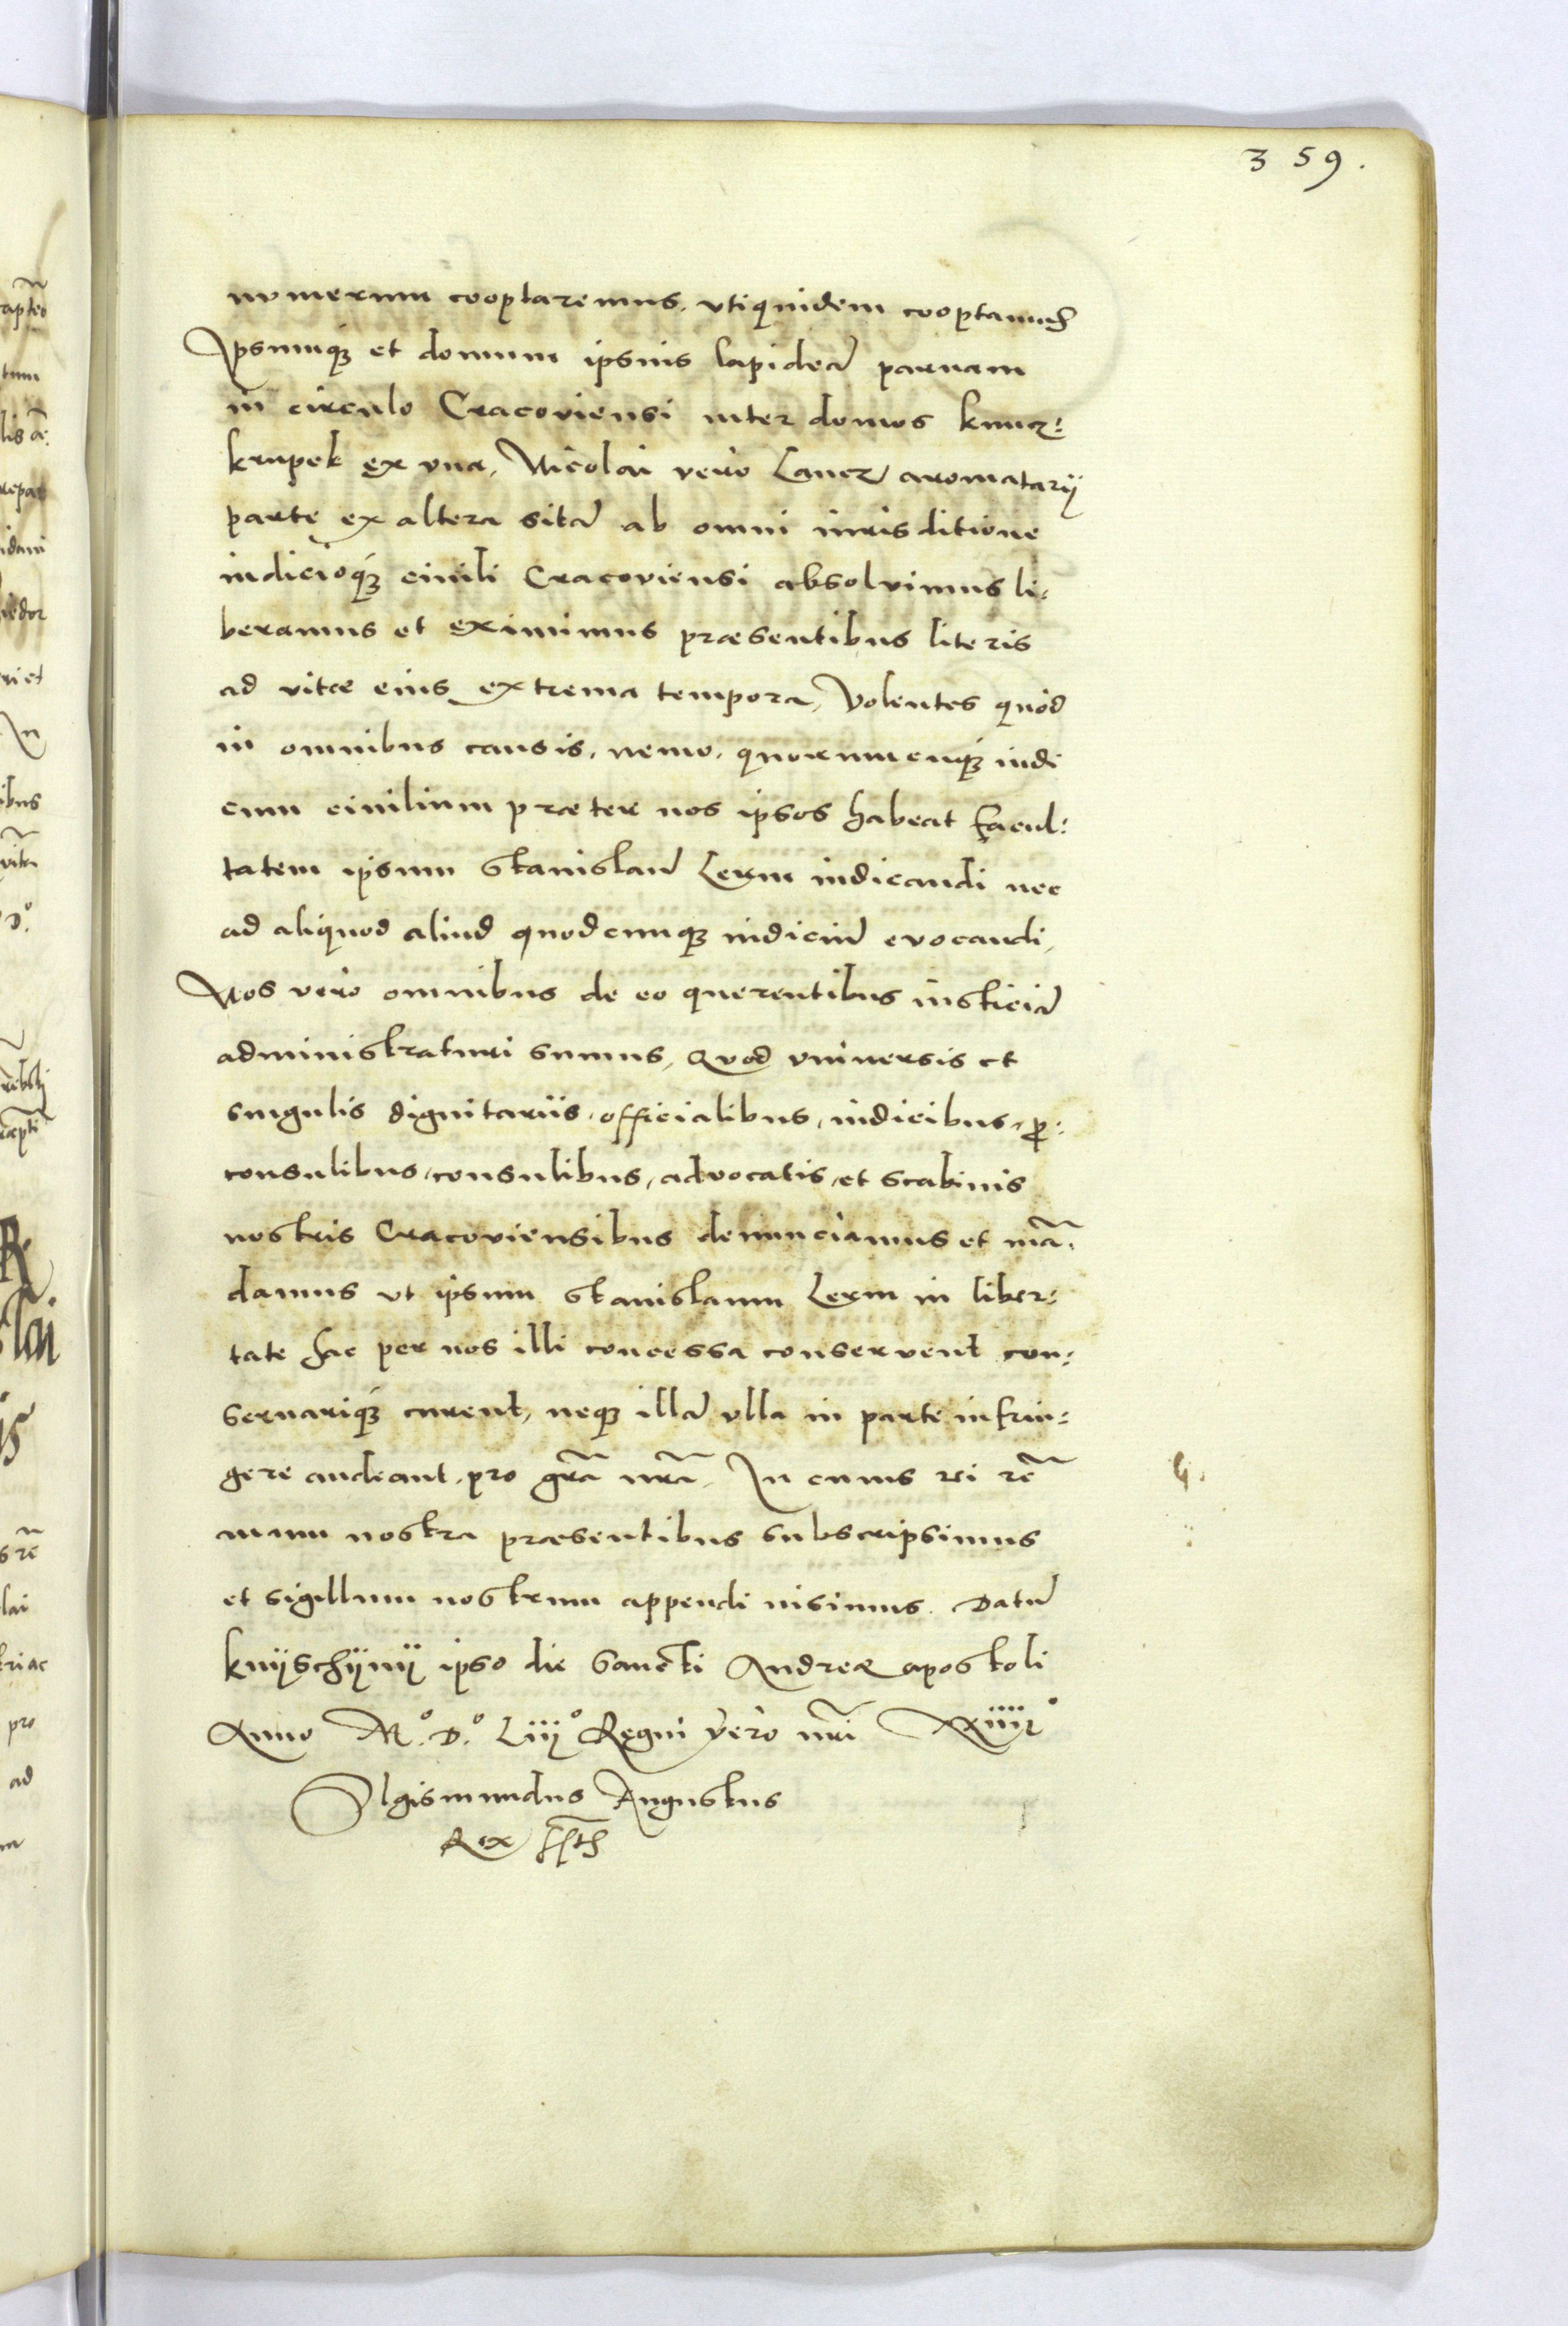 359.
numerum cooptaremus, utiquidem cooptamus
Ipsumq3 et domum ipsius lapideã paruam
in circulo Cracoviensi inter domos kuncz:
krupek ex una, Nicolai vero Lancz aromatarij
parte ex altera sitã ab omni iurisditione
iudicioq3 ciuili Cracoviensi absolvimus li-
beramus et eximimus præsentibus literis
ad vitæ eius extrema tempora, Volentes quòd
in omnibus causis, nemo, quorumcunq3 iudi
cum ciuilium præter nos ipsos habeat facul:
tatem ipsum Stanislaũ Lerm iudicandi nec
ad aliquod aliud quodcunq3 iudiciũ evocandi,
Nos vero omnibus de eo querentibus iusticiã
administraturi sumus, Quod universis et
singulis dignitariis, officialibus, iudicibus, ꝓ:
consulibus, consulibus, advocatis, et scabinis
nostris Cracoviensibus denunciamus et mã-
damus ut ipsum Stanislaum Lerm in liber:
tate hac per nos illi concessa conservent con:
seruariq3 curent, neq3 illã ulla in parte infrin:
gere audeant, pro grã nrã. In cuius rei rẽ
manu nostra præsentibus subscripsimus
et sigillum nostrum appendi iusimus. Datũ
knijschijnij ipso die Sancti Andreæ apostoli
Anno M.º D.º Liij.º Regni vero nrĩ XXiiijº
SIgismundus Augustus
Rex sst